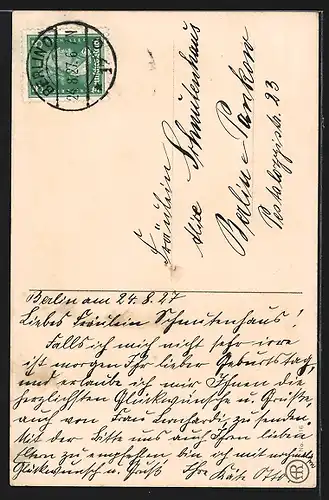 BERLIN O
27.6-7N
Fräulein
Alice Schmutenhaus
Berlin-Pankow
Pestalozzistr. 23
Berlin am 24.8.27
Liebes Fräulein Schmutenhaus!
Falls ich mich nicht sehr irre
ist morgen Ihr lieber Geburtstag,
und erlaube ich mir Ihnen die
herzlichsten Glückwünsche u. Grüße
auch von Frau Leonhardi zu senden.
Mit der Bitte uns auch Ihren lieben
Eltern zu empfehlen bin ich mit nochmaligem
Glückwunsch u. Gruß Ihre Käte Otto